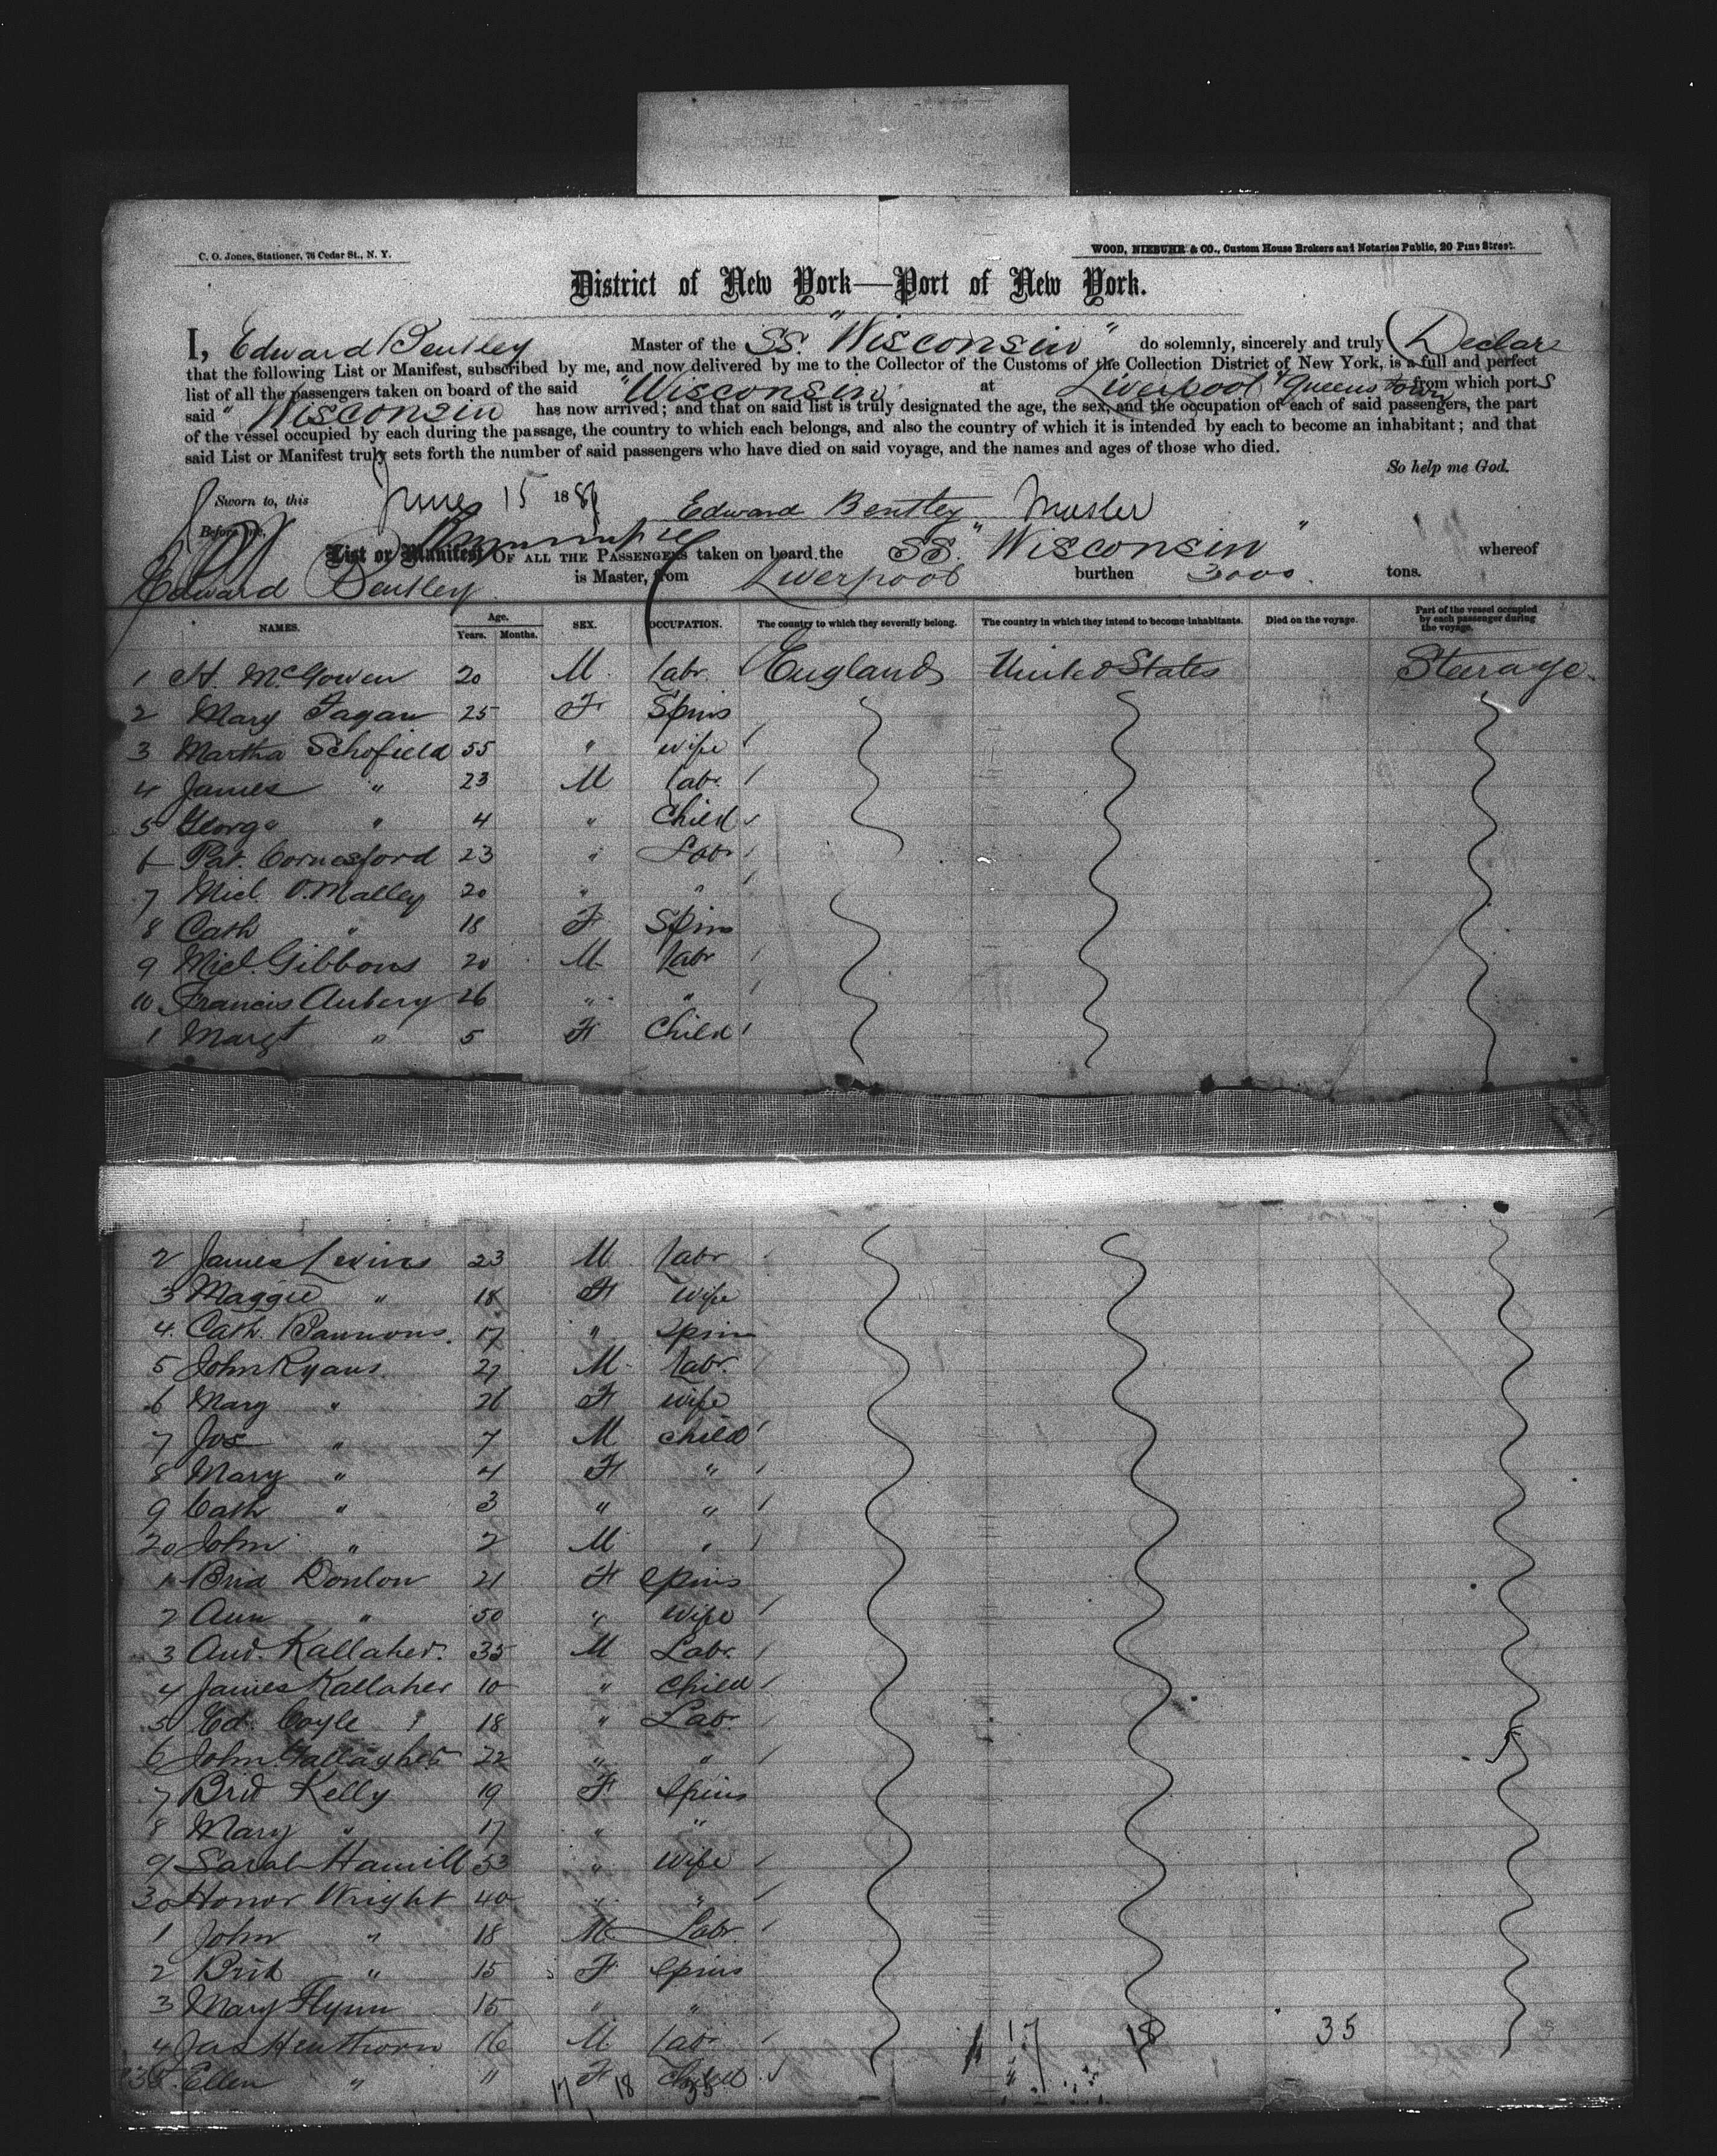 C. O. Jones, Stationer, 76 Cedar St., N. Y.
WOOD, NIEBUHR & CO., Custom House Brokers and Notaries Public, 20 Pine Street.
District of New York—Port of New York.
I, Edward Bentley Master of the SS. "Wisconsin" do solemnly, sincerely and truly Declare
that the following List or Manifest, subscribed by me, and now delivered by me to the Collector of the Customs of the Collection District of New York, is a full and perfect
list of all the passengers taken on board of the said "Wisconsin" at Liverpool & Queenstown from which ports
said "Wisconsin has now arrived; and that on said list is truly designated the age, the sex, and the occupation of each of said passengers, the part
of the vessel occupied by each during the passage, the country to which each belongs, and also the country of which it is intended by each to become an inhabitant; and that
said List or Manifest truly sets forth the number of said passengers who have died on said voyage, and the names and ages of those who died.
So help me God.
Sworn to, this June 15 188 Edward Bentley Master
Before me,
List or Manifest OF ALL THE PASSENGERS taken on board the SS. "Wisconsin" whereof
Edward Bentley is Master, from Liverpool burthen 3000 tons.
NAMES. Age. Years. Months. SEX. OCCUPATION. The country to which they severally belong. The country in which they intend to become inhabitants. Died on the voyage. Part of the vessel occupied by each passenger during the voyage.
1 H. McGowen 20 M. Labr. England United States Steerage.
2 Mary Fagan 25 F Spins
3 Martha Schofield 55 " wife
4 James " 23 M Labr.
5 George " 4 " Child
6 Pat. Cornesford 23 " Labr
7 Micl O.Malley 20 " "
8 Cath " 18 F Spins
9 Micl. Gibbons 20 M. Labr
10 Francis Aubery 26 " "
1 Margt " 5 F Child
2 James Levins 23 M Labr
3 Maggie " 18 F Wife
4. Cath. Bannons. 17 " Spins
5 John Ryans. 27 M. Labr.
6 Mary " 26 F wife
7 Jos " 7 M child
8 Mary " 4 F "
9 Cath " 3 " "
20 John " 2 M "
1 Brid Donlon 21 F Spins
2 Ann " 50 " Wife
3 And. Kallaher. 35 M Labr.
4 James Kallaher 10 " Child
5 Ed. Coyle 18 " Labr.
6 John Gallagher 22 " "
7 Brid Kelly 19 F Spins
8 Mary " 17 " "
9 Sarah Hamill 53 " Wife
30 Honor Wright 40 " "
1 John " 18 M Labr.
2 Brid " 15 F Spins
3 Mary Flynn 15 " "
4 Jas Henthorn 16 M Labr 17 18 35
35. Ellen " 11 F Child
17 18 35